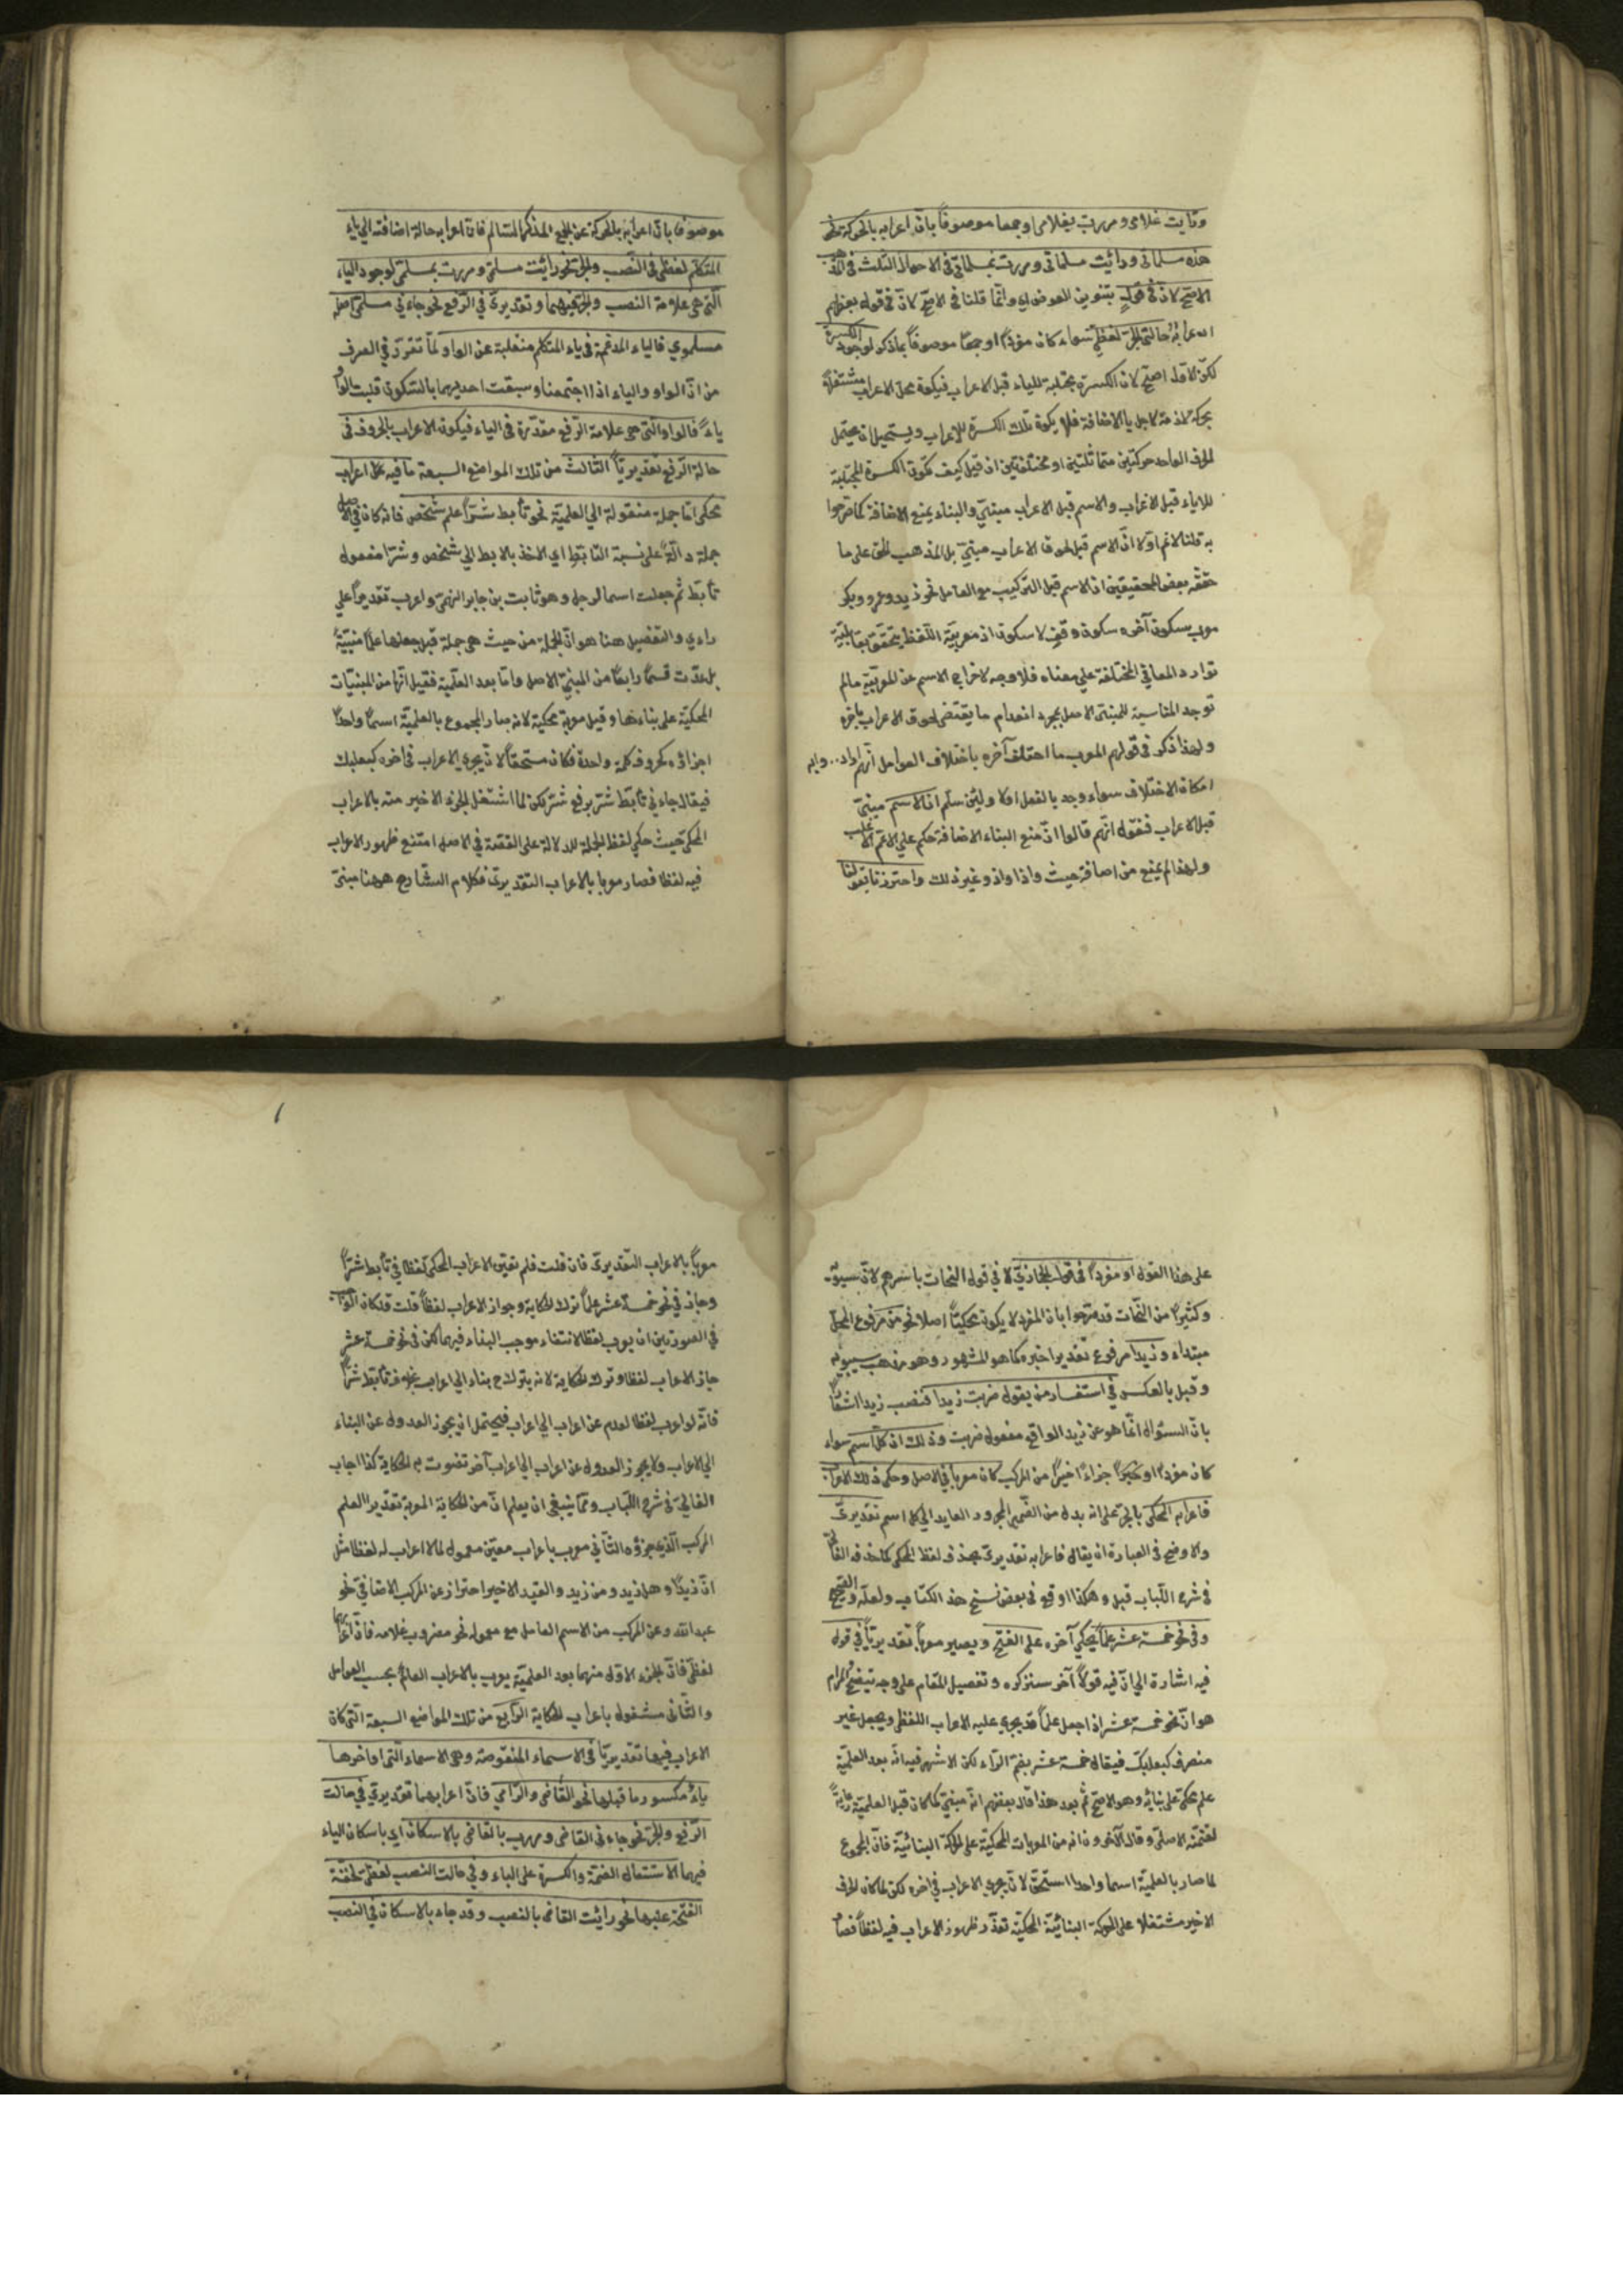 ورأيت غلامى ومررت بغلامى او جمعا موصوفاً بانّ اعرابه بالحركة نحو
هذه مسلماتى ورأيت مسلماتى ومررت بمسلماتى فى الاحوال الثلث فى القول
الاصحّ لانّ فى قولٍ بتنوين العوض اى وانّما قلنا فى الاصحّ لانّ فى قول بعضهم
اعرابه حالة الجرّ لفظىّ سواء كان مفردًا او جمعًا موصوفاً بما ذكر لوجود الكسرة
لكن الاوّل اصحّ لانّ الكسرة مجتلبة للياء قبل الاعراب فيكون محلّ الاعراب مشتغلاً
بحركة لازمة لاجل ياء الاضافة فلا يكون تلك الكسرة للاعراب ويستحيل ان يحتمل
الحرف الواحد حركتين متماثلتين او مختلفتين ان قيل كيف تكون الكسرة المجتلبة
للياء قبل الاعراب والاسم قبل الاعراب مبنىّ والبناء يمنع الاضافة كما صرّحوا
به قلنا لا نم اوّلا انّ الاسم قبل لحوق الاعراب مبنىّ بل المذهب الحقّ على ما
حقّقه بعض المحقيقين ان الاسم قبل التركيب مع العامل نحو زيد وعمرو وبكر
معرب بسكون آخره سكون وقفٍ لا سكون
توارد المعانى المختلفة على معناه فلا وجه لاخراج الاسم عن المعربيّة مالم
توجد المناسبة للمبنى الاصل بمجرد انعدام ما يقتضى لحوق الاعراب بآخره
ولهذا ذكر فى قولهم المعرب ما اختلف آخره باختلاف العوامل انّهم ارادوا به
امكان الاختلاف سواء وجد بالفعل اولا ولئن سلّم انّ الاسم مبنىّ
قبل الاعراب فنقول انّهم قالوا انّ منع البناء الاضافة حكم على الاعمّ الاغلب
ولهذا لم يمنع من اضافة حيث واذا واذ وغير ذلك واحترزنا بقولنا
موصوفا بانّ اعرابه بالحركة عن الجمع المذكر السّالم فانّ اعرابه حالة اضافته الى ياء
المتكلّم لفظىّ فى النّصب والجرّ نحو رأيت مسلمىّ ومررت بمسلمىّ لوجود الياء
الّتى هى علامة النصب والجرّ فيهما وتقديرىّ فى الرّفع نحو جاءنى مسلمىّ اصله
مسلموى فالياء المدغمة فى ياء المتكلّم منقلبة عن الواو لما تقرّر فى الصرف
من انّ الواو والياء اذا اجتمعتا وسبقت احديهما بالسّكون قلبت الواو
ياءً فالواو الّتى هى علامة الرّفع مقدّرة فى الياء فيكون الاعراب بالحروف فى
حالة الرّفع تقديريّاً الثالث من تلك المواضع السبعة ما فيه اعراب
محكى امّا جملة منقولة الى العلميّة نحو تأبّط شرّاً علم شخص فانه كان فى الاصل
جملة دالّة على نسبة التأبّط اى الاخذ بالابط الى شخص وشرّا مفعول
تأبّط ثم جعلت اسما لرجل وهو ثابت بن جابر الفهمىّ واعرب تقديراً على
راى والتفصيل هنا هو انّ الجملة من حيث هى جملة قبل جعلها علما مبنيّة
بل عدّت قسمًا رابعًا من المبنىّ الاصل وامّا بعد العلميّة فقيل انّها من المبنيّات
المحكيّة على بناءها وقيل معربة محكية لانه صار المجموع بالعلميّة اسمًا واحدًا
اجزاؤه كحروف كلمة واحدة فكان مستحقّاً لان يجرى الاعراب فى آخره كبعلبك
فيقال جاءنى تأبّط شرّ برفع شرّ لكن لما اشتغل الجزء الاخير منه بالاعراب
المحكىّ حيث حكى لفظ الجملة للدلالة على القصّة فى الاصل امتنع ظهور الاعراب
فيه لفظا فصار معربا بالاعراب التقديرىّ فكلام الشّارح ههنا مبنىّ
على هذا القول او مفردًا فى قول الحجازىّ لا فى قول النحات باسرهم لانّ سيبويه
وكثيرًا من النّحات قد صرّحوا بانّ المفرد لا يكون محكيّاً اصلا نحو من مرفوع المحلّ
مبتداء وزيدا مرفوع تقديرا خبره كما هو المشهور وهو مذهب سيبويه
وقيل بالعكس فى استفسار من يقول ضربت زيدا فنصب زيدا
بانّ السؤال انّما هو عن زيد الواقع مفعول ضربت وذلك ان كلّ اسم سواء
كان مفردًا او جزاءً اخيرًا من المركّب كان معربا فى الاصل وحكى ذلك الاعراب
فاعرابه المحكى بالجرّ على انه بدل من الضّمير المجرور العايد الى كلّ اسم تقديرىّ
والاوضح فى العبارة ان يقال فاعرابه تقديرىّ بحذف لفظ المحكى كما حذفه الفالىّ
فى شرح اللّباب قيل وهكذا وقع فى بعض نسخ هذا الكتاب ولعلّه الصّحيح
وفى نحو خمسة عشر علماً يحكى آخره على الفتح ويصير معربا تقديريّاً فى قول
فيه اشارة الى انّ فيه قولاً آخر سنذكره وتفصيل المقام على وجه يتّضح المرام
هو انّ نحو خمسة عشر اذا جعل علماً قد يجرى عليه الاعراب اللفظىّ ويجعل غير
منصرف كبعلبكّ فيقال خمسة عشر بضمّ الرّاء لكن الاشهر فيه انّه بعد العلميّة
علم محكىّ على بنائه وهو الاصحّ ثمّ بعد هذا قال بعضهم انّه مبنىّ كما كان قبل العلميّة
وقال الآخرون انه من المعربات المحكيّة على الحركة البنائيّة فانّ المجموع
لما صار بالعلميّة اسما واحدا استحقّ لان يجرى الاعراب فى اخره لكن لما كان الحرف
الاخير مشتغلا على الحركة البنائيّة المحكيّة تعذّر ظهور الاعراب فيه لفظاً فصار
معرباً بالاعراب التقديرىّ فان قلت فلم تعيّن الاعراب المحكى لفظا فى تأبّط شرّاً
وجاز فى نحو خمسة عشر علماً ترك الحكاية وجواز الاعراب لفظاً قلت قد كان
فى الصورتين ان يعرب لفظا لانتفاء موجب البناء فيهما لكن فى نحو خمسة عشر
جاز الاعراب لفظا وترك الحكاية لانه يترك ح بناء الى اعراب بخلاف تأبّط شرّاً
فانّه لو اعرب لفظا لعدل عن اعراب الى اعراب فيحتمل ان يجوز العدول عن البناء
الى الاعراب ولا يجوز العدول عن اعراب الى اعراب آخر تفوت به الحكاية كذا اجاب
الفالىّ فى شرح اللّباب وممّا ينبغى ان يعلم انّ من الحكاية المعربة تقديرا العلم
المركب الّذى جزؤه الثّانى معرب باعراب معيّن معمول لما لا اعراب له لفظا مثل
انّ زيدًا وهل زيد ومن زيد والقيد الاخير احتراز عن المركب الاضافىّ نحو
عبد الله وعن المركب من الاسم العامل مع معموله نحو مضروب غلامه فانّ
لفظىّ فانّ الجزء الاوّل منهما بعد العلميّة يعرب بالاعراب العامّ بحسب العوامل
والثّانى مشغول باعراب الحكاية الرّابع من تلك المواضع السبعة الّتى كان
الاعراب فيها تقديريّا فى الاسماء المنقوصة وهى الاسماء الّتى اواخرها
ياءٌ مكسور ما قبلها نحو القاضى والرّامى فانّ اعرابهما تقديرىّ فى حالت
الرّفع والجرّ نحو جاءنى القاضى ومررت بالقاضى بالاسكان اى باسكان الياء
فيهما لاستثقال الضمّة والكسرة على الياء وفى حالت النصب لفظىّ لخفّة
الفتحة عليها نحو رأيت القاضى بالنصب وقد جاء بالاسكان فى النصب